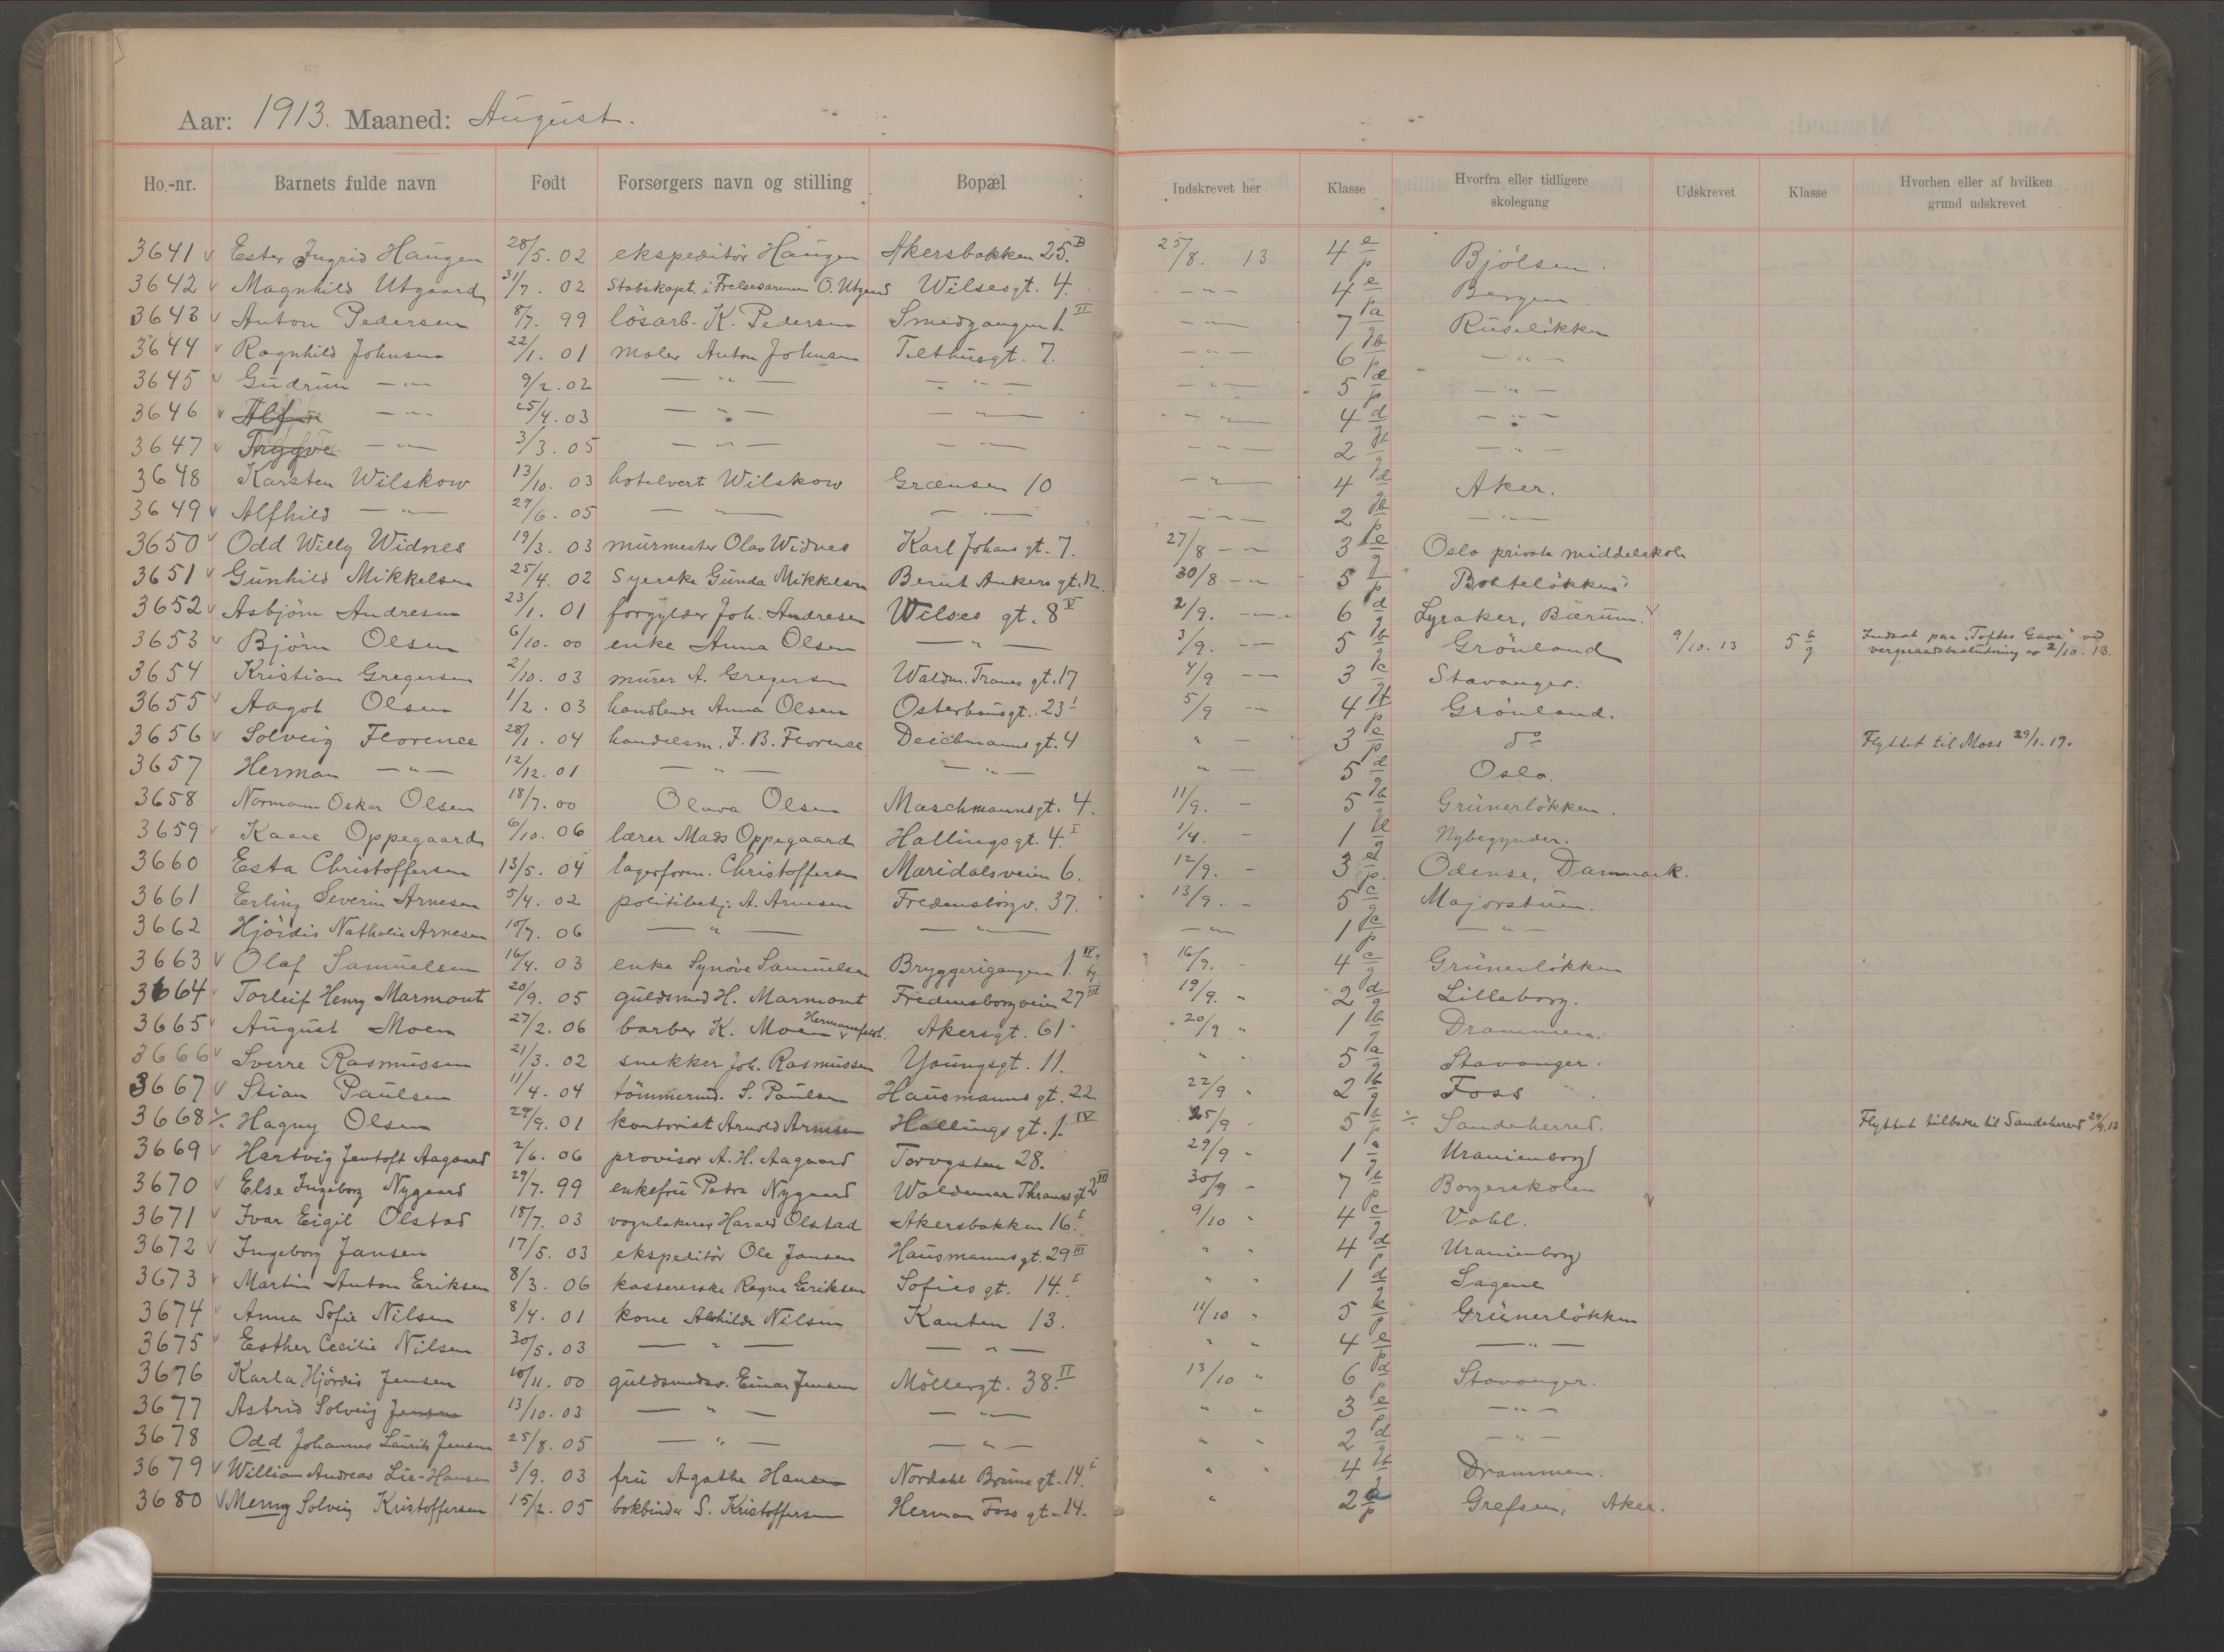 Aar: 1913. Maaned: August.
Ho.-nr. Barnets fulde navn Født Forsørgers navn og stilling Bopæl Indskrevet her Klasse Hvorfra eller tidligere skolegang Udskrevet Klasse Hvorhen eller af hvilken grund udskrevet
3641 v Ester Ingrid Haugen 28/5. 02 ekspeditör Haugen Akersbakken 25.B 25/8. 13 4 e/p Bjölsen.
3642 v Magnhild Utgaard 31/7. 02 Stabskapt. i Frelsesarmeen O. Utgaard Wilsesgt. 4. — " — 4 e/p Bergen.
3643 v Anton Pedersen 8/7. 99 lösarb. K. Pedersen Smedgangen 1. II — " — 7 a/g Ruselökken
3644 v Ragnhild Johnsen 22/1. 01 maler Anton Johnsen Telthusgt. 7. — " — 6 b/p — " —
3645 v Gudrun — " — 9/2. 02 — " — — " — — " — 5 d/p — " —
3646 v Alf — " — 25/4. 03 — " — — " — — " — 4 d/g — " —
3647 v Trygve — " — 3/3. 05 — " — — " — — " — 2 b/g — " —
3648 Karsten Wilskow 13/10. 03 hotelvert Wilskow Grænsen 10 — " — 4 d/g Aker.
3649 v Alfhild — " — 29/6. 05 — " — — " — — " — 2 b/p — " —
3650 v Odd Willy Widnes 19/3. 03 murmester Olav Widnes Karl Johans gt. 7. 27/8 — " 3 e/g Oslo private middelskole
3651 v Gunhild Mikkelsen 25/4. 02 Syerske Gunda Mikkelsen Bernt Ankers gt. 12. 30/8 — " 5 f/p Bolteløkken
3652 v Asbjörn Andresen 23/1. 01 forgylder Joh. Andresen Wilses gt. 8 V 2/9. — " 6 d/g Lysaker, Bærum. v
3653 v Björn Olsen 6/10. 00 enke Anna Olsen — " — 3/9. — " 5 b/g Grönland 9/10. 13 5 b/g Indsat paa "Toftes Gave" ved vergeraadsbeslutning av 2/10. 13.
3654 Kristian Gregersen 2/10. 03 murer A. Gregersen Waldm. Tranes gt. 17 4/9 — " 3 c/g Stavanger.
3655 v Aagot Olsen 1/2. 03 handlende Anna Olsen Osterhausgt. 23 I 5/9 — " 4 f/p Grönland.
3656 v Solveig Florence 28/1. 04 handelsm. F. B. Florence Deichmanns gt. 4 " — 3 e/p do Flyttet til Moss 29/1. 19.
3657 Herman — " — 12/12. 01 — " — — " — " — 5 d/g Oslo.
3658 Normann Oskar Olsen 18/7. 00 Olava Olsen Maschmannsgt. 4. 11/9. — 5 b/g Grünerlökken.
3659 v Kaare Oppegaard 6/10. 06 lærer Mads Oppegaard Hallings gt. 4. I 1/4. — 1 d/g Nybegynder.
3660 Esta Christoffersen 13/5. 04 lagerform. Christoffersen Maridalsveien 6. 12/9. — 3 d/p. Odense, Danmark.
3661 Erling Severin Arnesen 5/4. 02 politibetj. A. Arnesen Fredensborgv. 37. 13/9. — 5 c/g Majorstuen.
3662 Hjördis Nathalie Arnesen 10/7. 06 — " — — " — — " — 1 c/p — " —
3663 v Olaf Samuelsen 16/4. 03 enke Synöve Samuelsen Bryggerigangen 1. IV 16/9. — 4 c/g Grünerlökken
3664 v Torleif Henry Marmont 20/9. 05 guldsmed H. Marmont Fredensborgveien 27 III 19/9. " 2 d/g Lilleborg.
3665 v August Moen 27/2. 06 barber K. Moen Akersgt. 61 20/9 " 1 b/g Drammen.
3666 v Sverre Rasmussen 21/3. 02 snekker Joh. Rasmussen Youngsgt. 11. " " 5 a/g Stavanger.
3667 v Stian Paulsen 11/4. 04 tömmermd. S. Paulsen Hausmanns gt. 22 22/9 " 2 b/g Foss
3668 ÷ Hagny Olsen 29/9. 01 kontorist Arnold Arnesen Hallings gt. 1. IV 25/9 — 5 b/p ÷ Sandeherred. Flyttet tilbake til Sandeherred 29/9.13
3669 v Hartvig Jentoft Aagaard 2/6. 06 provisor A. H. Aagaard Torvgaten 28. 29/9 " 1 a/g Uranienborg
3670 v Else Ingeborg Nygaard 29/7. 99 enkefru Petra Nygaard Waldemar Thranes gt 2 III 30/9 — 7 b/p Borgerskolen
3671 v Ivar Eigil Olstad 18/7. 03 vognlakerer Harald Olstad Akersbakken 16. I 9/10 " 4 c/g Vahl. v
3672 v Ingeborg Jansen 17/5. 03 ekspeditör Ole Jansen Hausmanns gt. 29 III " " 4 d/p Uranienborg
3673 v Martin Anton Eriksen 8/3. 06 kassererske Ragna Eriksen Sofies gt. 14. I " " 1 d/g Sagene
3674 v Anna Sofie Nilsen 8/4. 01 kone Alvhilde Nilsen Kanten 13. 11/10 " 5 k/p Grünerlökken
3675 v Esther Cecilie Nilsen 30/5. 03 — " — — " — " " 4 e/p — " —
3676 Karla Hjördis Jensen 10/11. 00 guldsmedsv. Einar Jensen Möllergt. 38. II 13/10 " 6 d/p Stavanger.
3677 Astrid Solveig Jensen 13/10. 03 — " — — " — " " 3 e/p — " —
3678 Odd Johannes Laurits Jensen 25/8. 05 — " — — " — " " 2 d/g — " —
3679 v William Andreas Lie-Hansen 3/9. 03 fru Agathe Hansen Nordahl Bruns gt. 14. I " " 4 b/g Drammen.
3680 v Menny Solveig Kristoffersen 15/2. 05 bokbinder S. Kristoffersen Herman Foss gt - 14. " 2 a/p Grefsen, Aker.